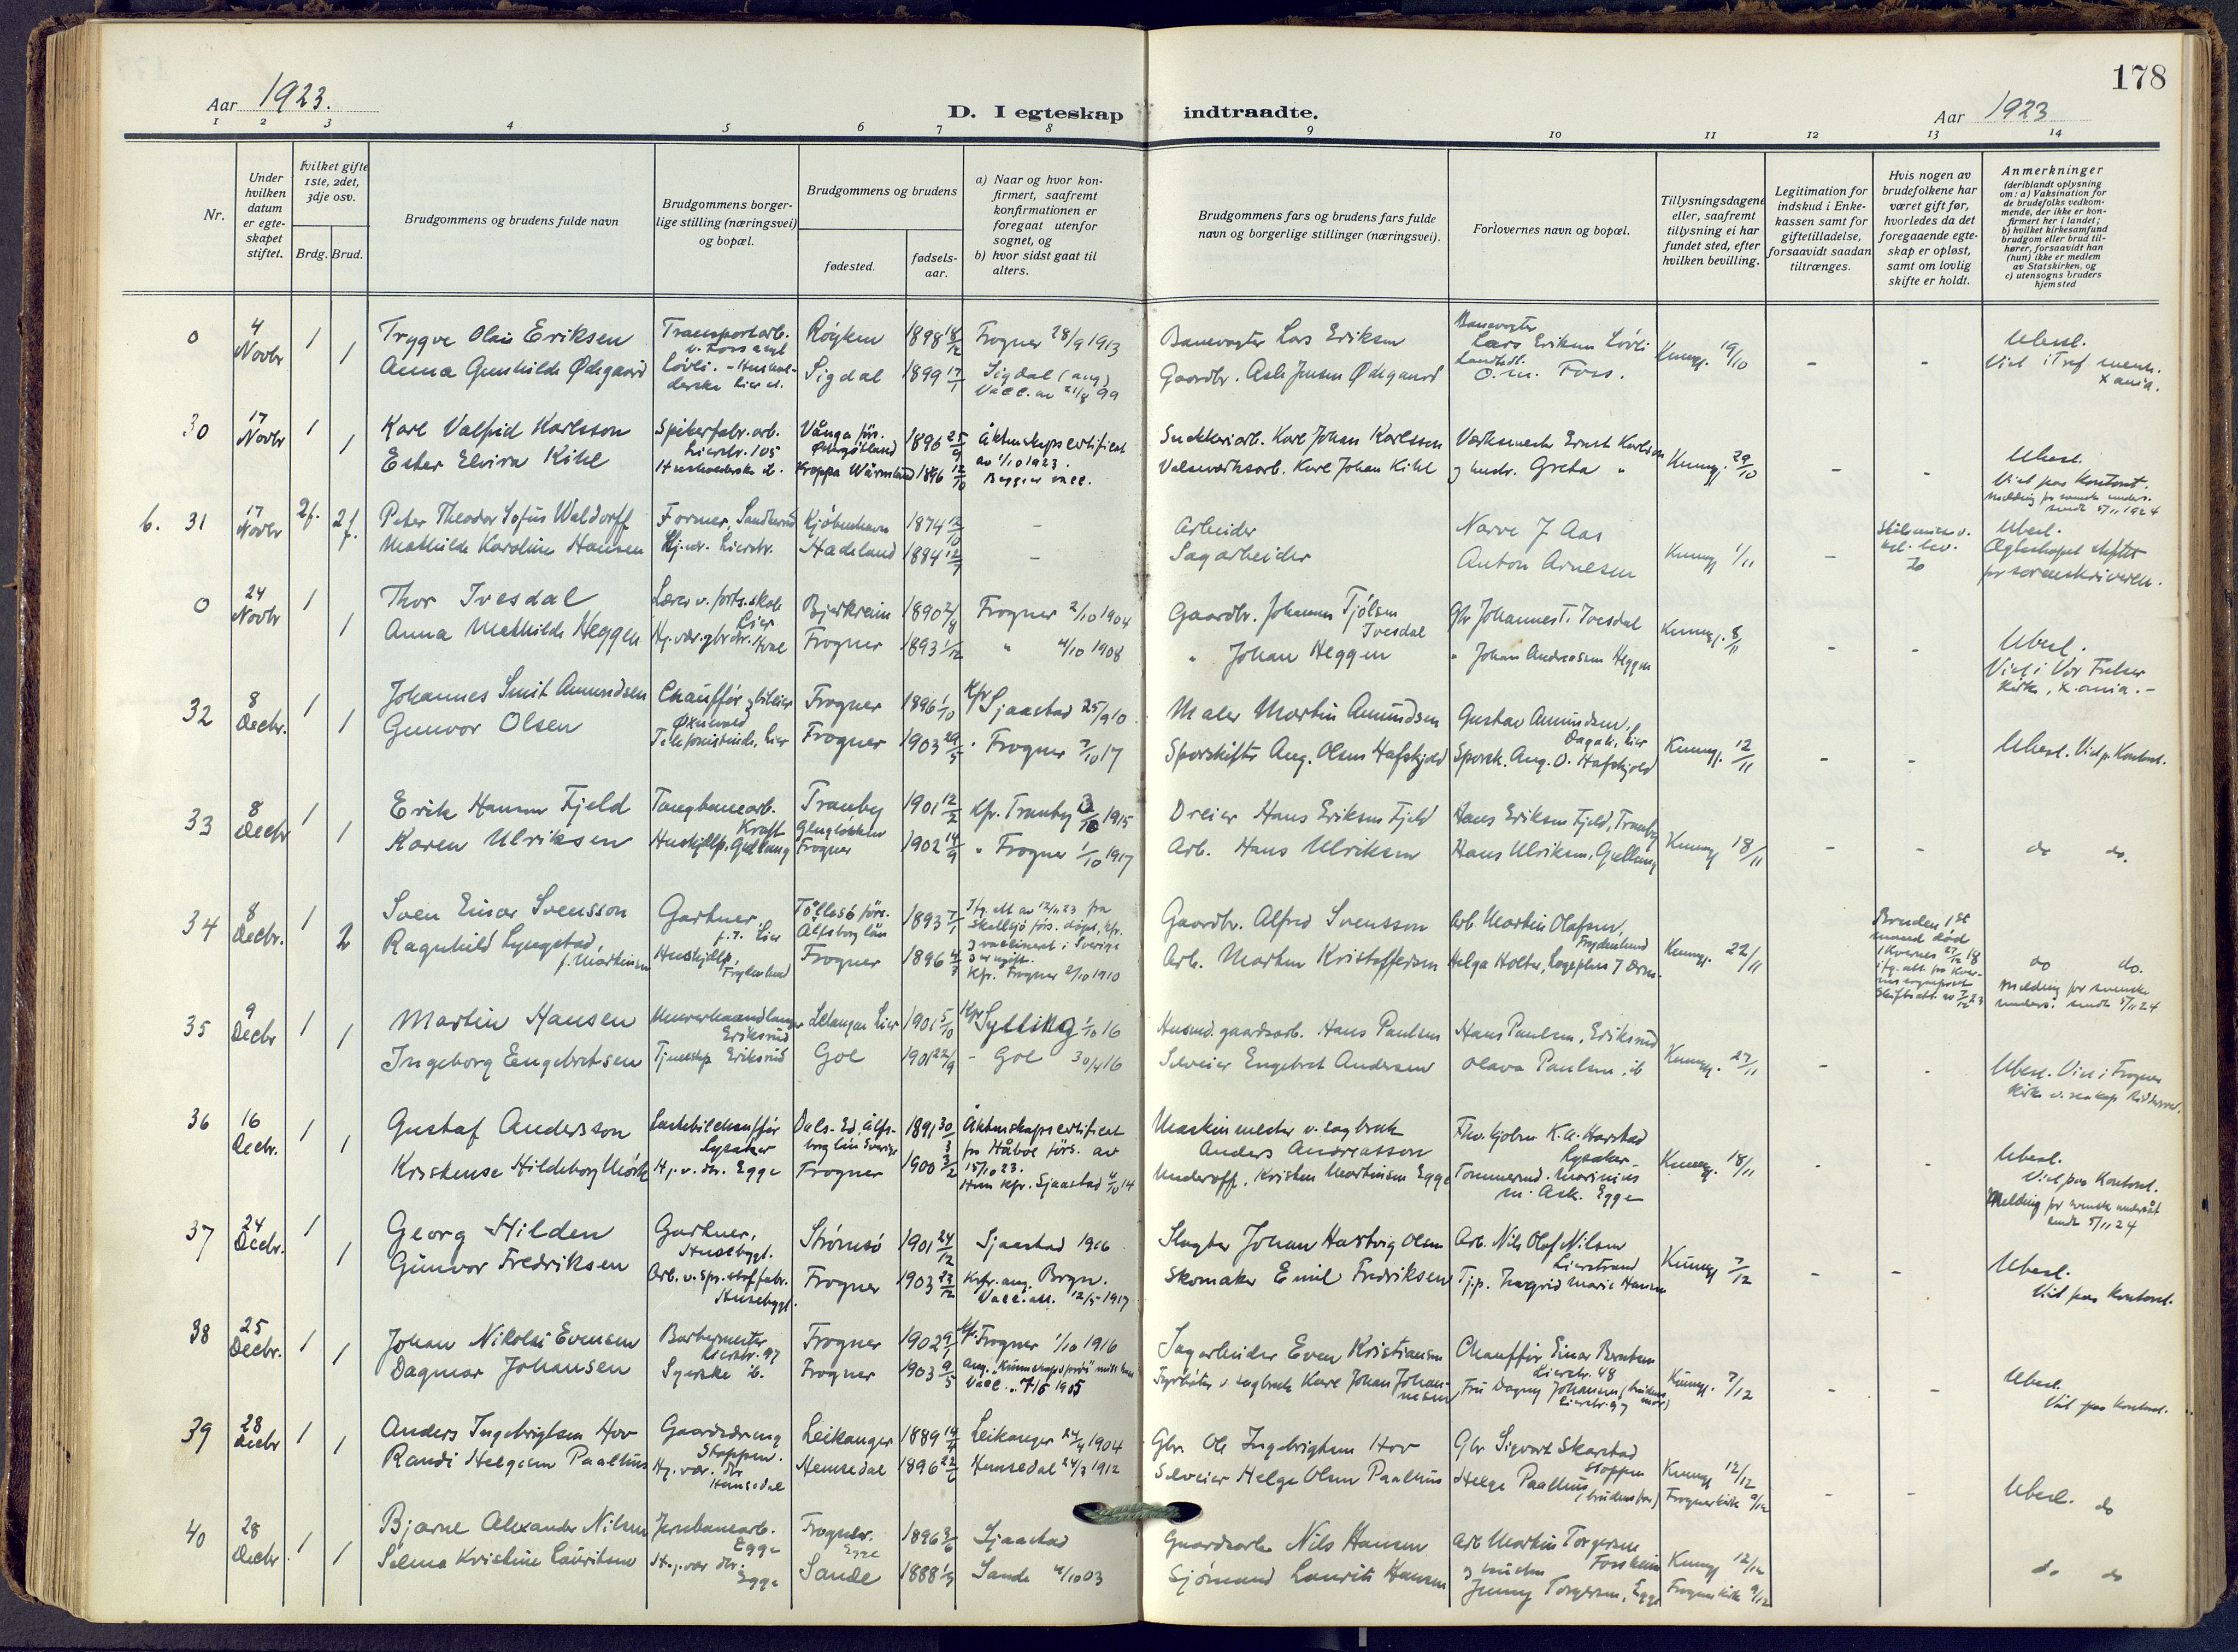 178
Aar 1923.
D. I egteskap indtraadte.
Aar 1923
1 2 3 4 5 6 7 8 9 10 11 12 13 14
Nr.
Under hvilken datum er egteskapet stiftet.
Hvilket gifte 1ste, 2det, 3dje osv.
Brdg. Brud.
Brudgommens og brudens fulde navn
Brudgommens borgerlige stilling (næringsvei) og bopæl.
Brudgommens og brudens
fødested.
fødselsaar.
a) Naar og hvor konfirmert, saafremt konfirmationen er foregaat utenfor sognet, og
b) hvor sidst gaat til alters.
Brudgommens fars og brudens fars fulde navn og borgerlige stillinger (næringsvei).
Forlovernes navn og bopæl.
Tillysningsdagene eller, saafremt tillysning ei har fundet sted, efter hvilken bevilling.
Legitimation for indskud i Enkekassen samt for giftetilladelse, forsaavidt saadan tiltrænges.
Hvis nogen av brudefolkene har været gift før, hvorledes da det foregaaende egteskap er opløst, samt om lovlig skifte er holdt.
Anmerkninger
(deriblandt oplysning om: a) Vaksination for de brudefolks vedkommende, der ikke er konfirmert her i landet; b) hvilket kirkesamfund brudgom eller brud tilhører, forsaavidt han (hun) ikke er medlem av Statskirken, og c) utensogns bruders hjemsted
0 4 Novbr 1 Trygve Olai Eriksen Transportarb. Røyken 1898 18/12 Frogner 28/9 1913 Banevogter Lars Eriksen Banevogter Lars Eriksen Løvli Kunng. 19/10 - - Ubesl.
1 Anna Gunhilde Ødegaard Sigdal 1899 17/1 Sigdal (ang) Gaardbr. Asle Jensen Ødegaard Landhdl. O. M. Foss.
30 17 Novbr 1 Karl Valfrid Karlsson Spikerfabr. arb. Lierstr. 105 Vånga förs. Östergötland 1890 25/9 Äktenskapscertificat av 1/10 1923. Snekkeriarb. Karl Johan Karlsson Værksmester Ernst Karlsson Kunng. 29/10 - - Ubesl.
1 Ester Elvira Kihl Husholderske ib. Kroppa Wärmland 1896 12/10 Begge vacc. Valseværksarb. Karl Johan Kihl og hustr. Greta " Viet paa Kontoret.
6. 31 17 Novbr 2f. Peter Theodor Sofus Waldorff Former, Kjøbenhavn 1874 12/10 - Arbeider Narve J Aas Kunng 1/11 - Ubesl.
2f. Mathilde Karoline Hansen Hj. vær. Lierstr. Hadeland 1894 12/7 - Sagarbeider Anton Arnesen Ægteskapet stiftet for sorenskriveren.
0 24 Novbr 1 Thor Ivesdal Lærer v. forts.skole Lier Bjerkreim 1890 2/8 Frogner 2/10 1904 Gaardbr. Johannes Tjølsen Ivesdal Gbr Johannes T. Ivesdal Kunng. 8/11 - - Ubesl.
1 Anna Mathilde Heggen Frogner 1893 1/12 " 4/10 1908 " Johan Heggen " Johan Andreassen Heggen Viet i Vor Frelser Kirke, X.ania. -
32 8 Decbr. 1 Johannes Smit Amundsen Chauffør Frogner 1896 1/10 Kfr Sjaastad 25/9 10 Maler Martin Amundsen Gustav Amundsen, Lier Kunng. 12/11 - - Ubesl. Viet p. Kontoret.
1 Gunvor Olsen Telefonistinde, Lier Frogner 1903 29/5 " Frogner 7/10 17 Sporskifter Aug. Olsen Hafskjold Sporsk. Aug. O. Hafskjold
33 8 Decbr 1 Erik Hansen Fjeld Tranby 1901 12/2 Kfr. Tranby 3/10 1915 Dreier Hans Eriksen Fjeld Hans Eriksen Fjeld, Tranby Kunng 18/11 - - do do.
1 Karen Ulriksen Hushjelp. Gullaug Frogner 1902 14/9 " Frogner 1/10 1917 Arb. Hans Ulriksen Hans Ulriksen, Gullaug
34 8 Decbr. 1 Sven Einar Svensson Gartner, p.t. Lier Töllesö förs. Älfsborg län 1893 7/1 Gaardbr. Alfred Svensson Arb. Martin Olafsen, Frydenlund Kunng. 22/11 Bruden 1st mand død do do.
2 Ragnhild Lyngstad, f. Martinsen Hushjelp, Frydenlund Frogner 1896 4/3 Kfr. Frogner 2/10 1910 Arb. Morten Kristoffersen Helga Holter, Melding for svenske unders. sendt 5/11 24
35 9 Decbr 1 Martin Hansen Murerhaandlanger Eriksrud Lier 1901 5/10 Kfr Sylling 1/10 16 Husmd. gaardsarb. Hans Paulsen Hans Paulsen, Eriksrud Kunng. 27/11 - - Ubesl. Viet i Frogner Kirke
1 Ingeborg Engebretsen Tjenestep Eriksrud Gol 1901 22/9 - Gol 30/4 16 Selveier Engebret Andersen Olava Paulsen, ib
36 16 Decbr. 1 Gustaf Andersson Lastebilchauffør Lysaker Dals-Ed. Älfsborg län Sverige 1891 30/3 Äktenskapscertificat fra Håbol förs. av 15/10 23. Maskinmester v. sagbruk Anders Andreasson K. A. Harstad Lysaker Kunng. 18/11 - - Ubesl. Viet paa Kontoret.
1 Kristense Hildeborg Mørk Hj. v. dtr. Egge Frogner 1900 3/2 Hun Kfr. Sjaastad 4/10 14 Underoff. Kristen Martinsen Egge Tømmermd. Marinius M. Ask. Egge Melding for svensk undersåt sendt 5/11 24
37 24 Decbr. 1 Georg Hilden Gartner, Husebygt. Strømsø 1901 24/12 Sjaastad 1916 Slagter Johan Hartvig Olsen Arb. Nils Olaf Nilsen Lierstrand Kunng 7/12 - - Ubesl.
1 Gunvor Fredriksen Arb. v. spr.stoffabr. Husebygt. Frogner 1903 23/12 Kfr. ang. Brgn. Vacc. att. 12/5 1917 Skomaker Emil Fredriksen Tj.p. Ingrid Marie Hansen Viet paa Kontoret.
38 25 Decbr. 1 Johan Nikolai Evensen Barbermester Lierstr. 97 Frogner 1902 9/1 Kfr. Frogner 1/10 1916 Sagarbeider Even Kristiansen Chauffør Einar Berntsen Lierstr. 48 Kunng. 7/12 - - Ubesl.
1 Dagmar Johansen Syerske ib. Frogner 1903 9/5 Fyrbøter v. sagbruk Karl Johan Johannesen Fru Dagny Johansen (brudens mor) Lierstr. 97 Viet paa Kontoret.
39 28 Decbr 1 Anders Ingebrigtsen Hov Gaardsdreng Stoppen. Leikanger 1889 19/4 Leikanger 24/4 1904 Gbr. Ole Ingebrigtsen Hov Gbr Sigvart Skarstad Stoppen Kunng 12/12 - - Ubesl. do
1 Randi Helgesen Paalhus Hj. vær. dtr Hemsedal Hemsedal 1896 22/6 Hemsedal 24/3 1912 Selveier Helge Olsen Paalhus Helge Paalhus (brudens far) Frogner kirke 9/12
40 28 Decbr. 1 Bjarne Alexander Nilsen Jernbanearb. Egge Frogner. Egge 1896 3/6 Sjaastad Gaardsarb. Nils Hansen Arb Martin Torgersen Fossheim Kunng 12/12 do do
1 Selma Kristine Lauritsen Hj. vær dtr. Egge Sande 1888 1/9 Sande 4/10 03 Sjømand Laurits Hansen Jenny Torgersen, Egge Frogner kirke 9/12